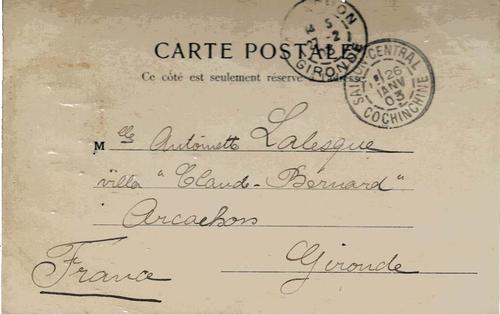 CARTE POSTALE
Ce côté est seulement réservé à l'adresse
GIRONDE
5
27-2
03
SAIGON-CENTRAL
26
JANV
03
COCHINCHINE
Mlle Antoinette Lalesque
villa "Claude-Bernard"
Arcachon
Gironde
France